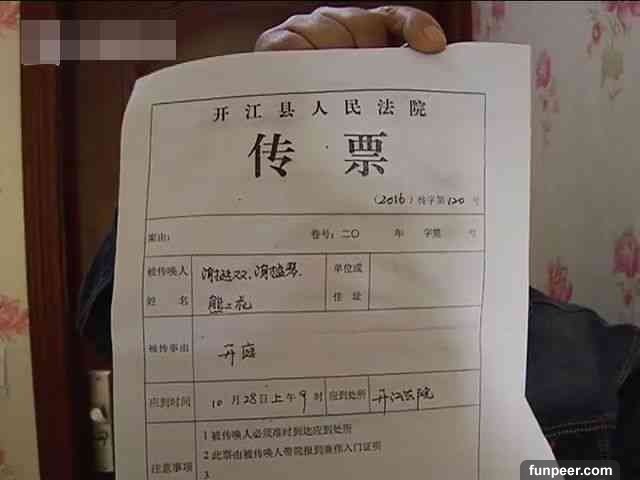 开江县人民法院
传票
(2016)传字第120号
案由: 卷号:二〇 年 字第 号
被传唤人姓名 单位或住址
被传事由 开庭
应到时间 10月28日上午9时 应到处所 开江法院
注意事项
1 被传唤人必须准时到达应到处所
2 此票由被传唤人带院报到兼作入门证明
3
funpeer.com